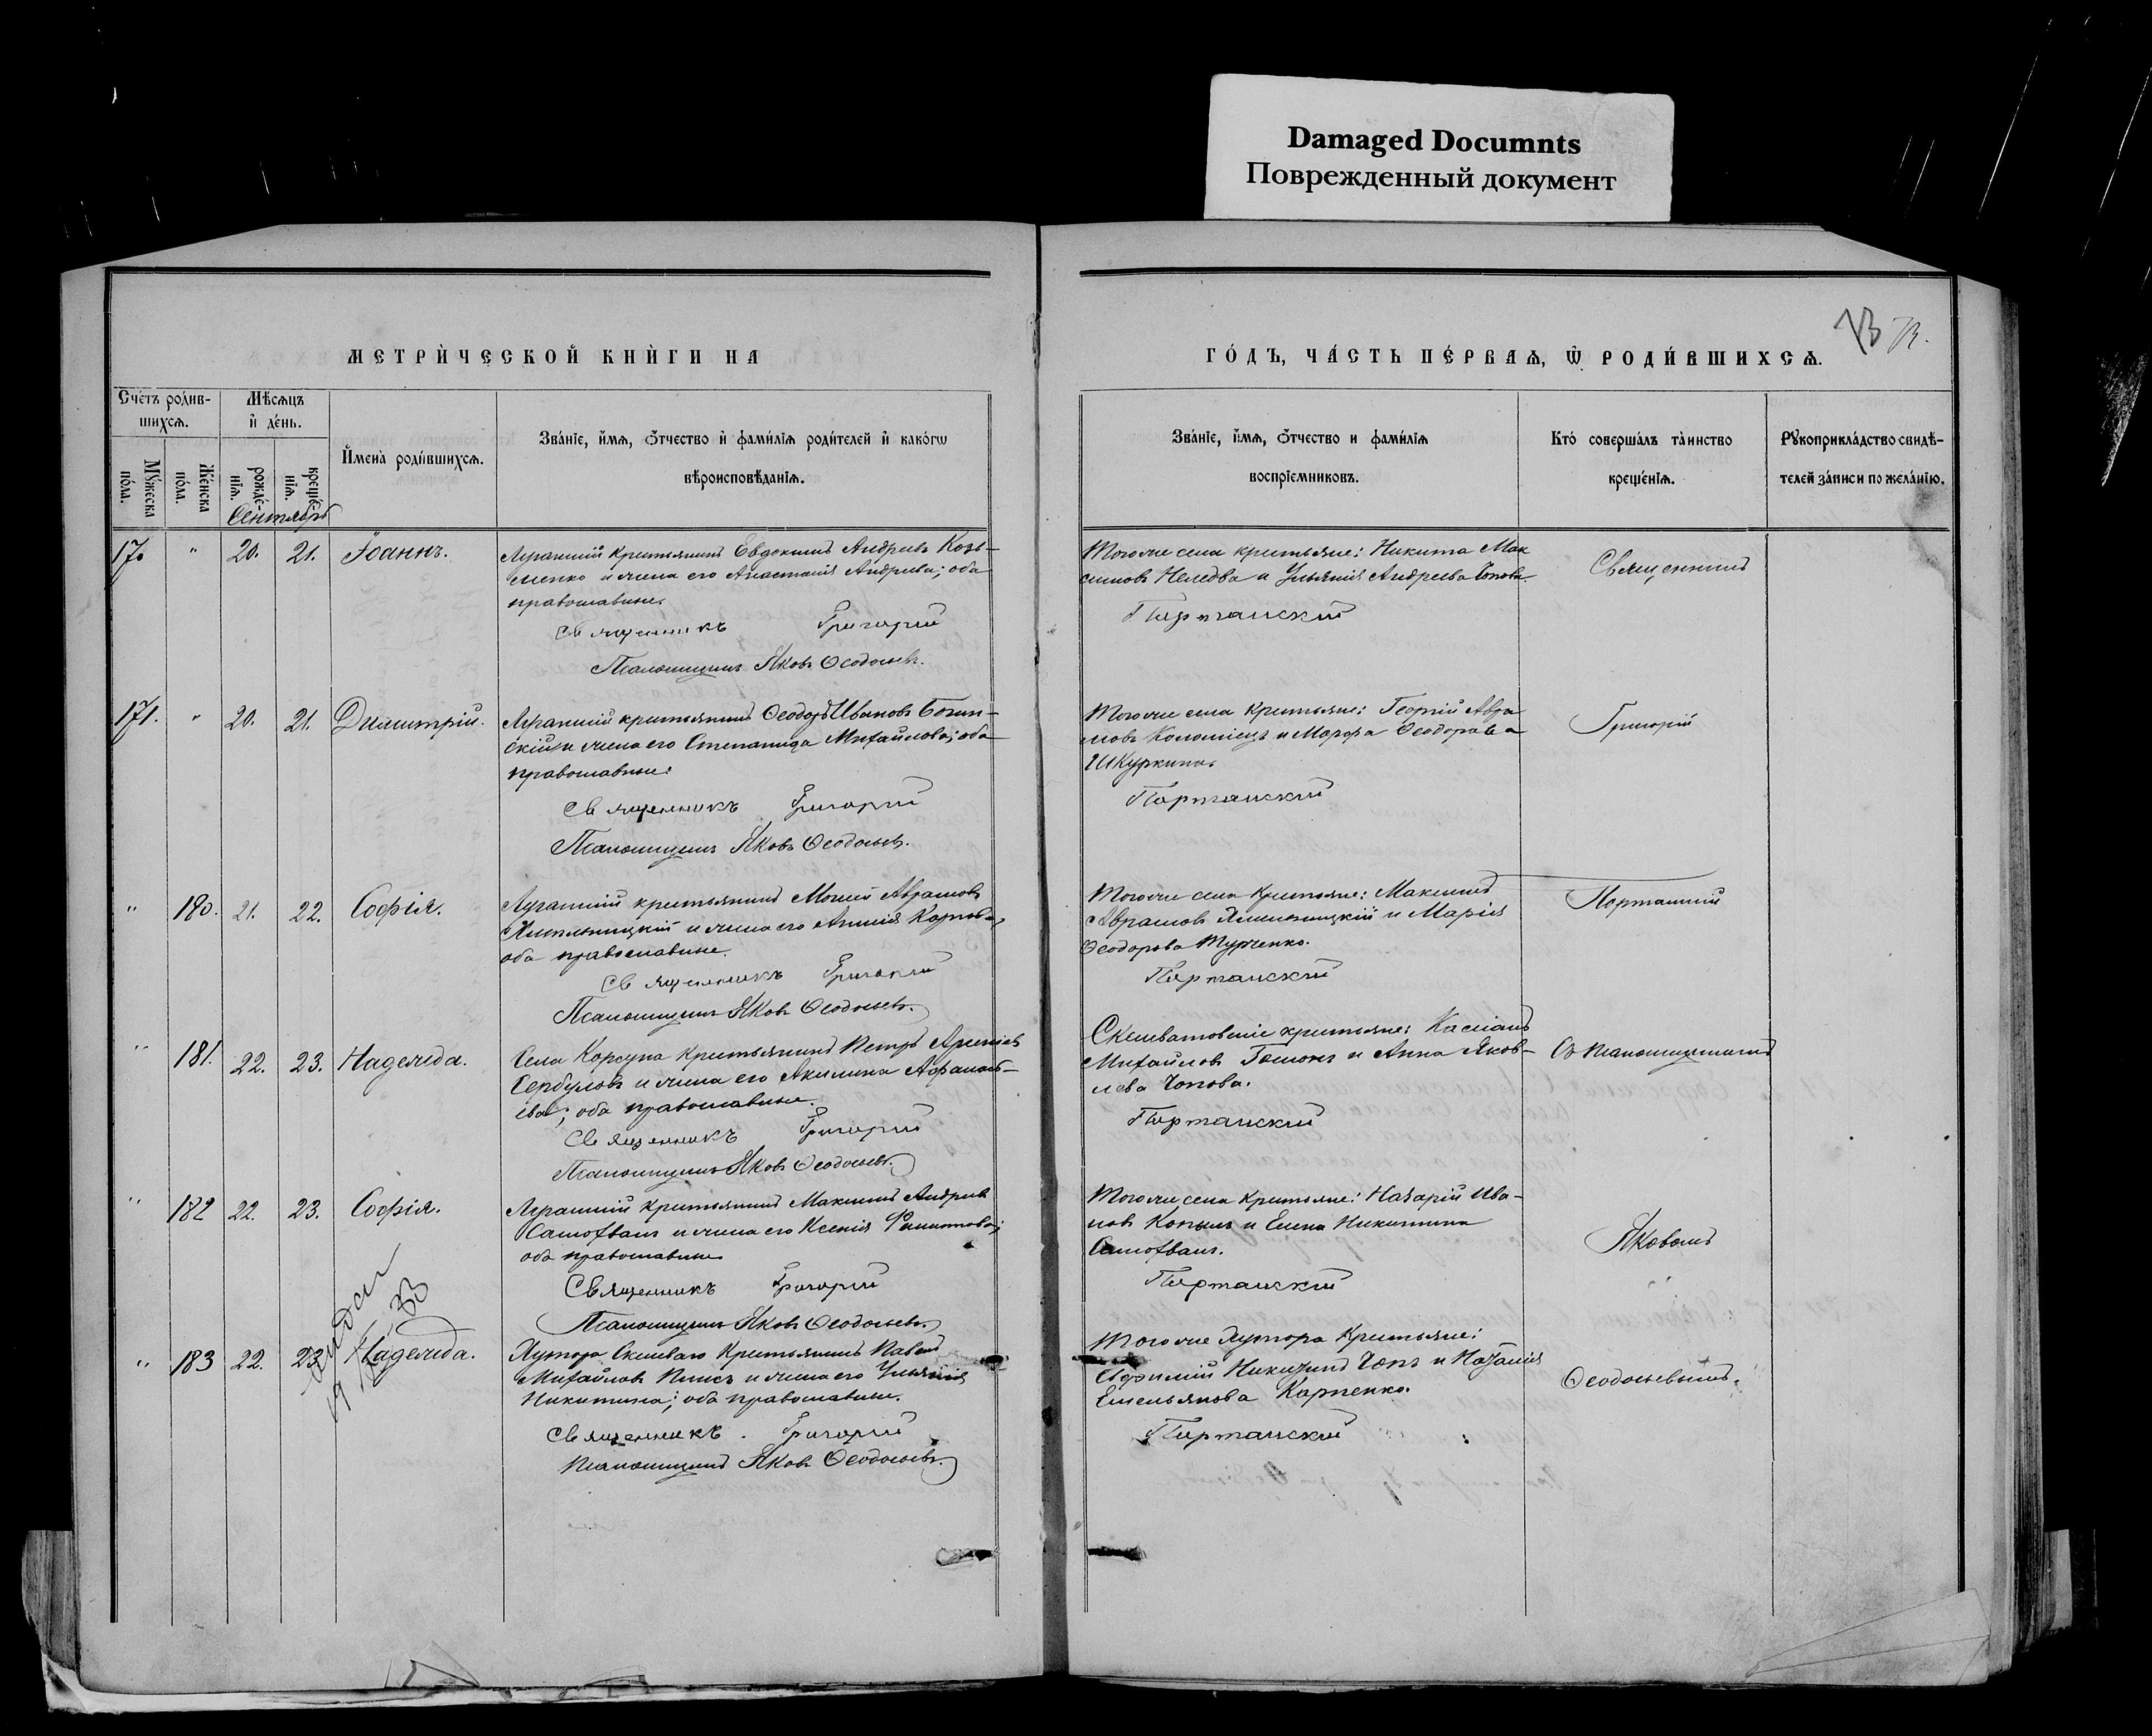 Damaged Documnts
Поврежденный документ
73
МЕТРИ́ЧЕСКОЙ КНИ́ГИ НА
ГО́ДЪ, ЧА́СТЬ ПЕ́РВАѦ, Ѡ҆ РОДИ́ВШИХСѦ.
Сче́тъ роди́в-
шихсѧ.
Мѣ́сѧцъ
и҆ де́нь.
Мꙋ́жеска
по́ла.
Же́нска
по́ла.
рожде́-
нїѧ.
креще́-
нїѧ.
И҆мена̀ роди́вшихсѧ.
Зва́нїе, и҆́мѧ, ѻ҆́тчество и҆ фамі́лїѧ роди́телей и҆ како́гѡ
вѣроисповѣ́данїѧ.
Зва́нїе, и҆́мѧ, ѻ҆́тчество и фамі́лїѧ
воспрїе́мниковъ.
Кто̀ соверша́лъ та́инство
креще́нїѧ.
Рꙋкоприкла́дство свидѣ́-
телей за́писи по жела́нїю.
Сентябрь
170 " 20. 21. Іоаннъ.
крестьянинъ Евдокимъ Андреевъ Козь-
менко и жена его Анастасія Андреева; оба
православные.
Священникъ Григорій
Псаломщикъ Яковъ Ѳеодосьевъ.
Того же села крестьяне: Никита Мак
симовъ и Ульянія Андреева
Портанскій
Священникъ
171. " 20. 21. Димитрій.
крестьянинъ Ѳеодоръ Ивановъ
скій и жена его Степанида Михайлова; оба
православные.
Священникъ Григорій
Псаломщикъ Яковъ Ѳеодосьевъ.
Того же села крестьяне: Георгій Авра
мовъ Коломіецъ и Марѳа Ѳеодорова
Шкуркина.
Портанскій
Григорій
" 180. 21. 22. Софія.
крестьянинъ Моисей Аврамовъ
Хмельницкій и жена его Карпова,
оба православные.
Священникъ Григорій
Псаломщикъ Яковъ Ѳеодосьевъ.
Того же села крестьяне: Максимъ
Аврамовъ Хмельницкій и Марія
Ѳеодорова Турченко.
Портанскій
Портанскій
" 181. 22. 23. Надежда.
Села Корсуна крестьянинъ Петръ
Сербуловъ и жена его Акилина Аѳанась-
ева; оба православные.
Священникъ Григорій
Псаломщикъ Яковъ Ѳеодосьевъ.
крестьяне: Кассіанъ
Михайловъ и Анна Яков-
лева Чопова.
Портанскій
Съ псаломщикомъ
" 182 22. 23. Софія.
крестьянинъ Максимъ Андреевъ
Самохвалъ и жена его Ксенія Филиппова;
оба православные
Священникъ Григорій
Псаломщикъ Яковъ Ѳеодосьевъ.
Того же села крестьяне: Назарій Ива-
новъ Копылъ и Елена Никитина
Самохвалъ.
Портанскій
Яковомъ
" 183 22. 23. Надежда.
Хутора крестьянинъ Павелъ
Михайловъ и жена его Ульянія
Никитина; оба православные.
Священникъ. Григорій
Псаломщикъ Яковъ Ѳеодосьевъ.
Того же Хутора крестьяне:
Евфимій Никитинъ Чопъ и Наталія
Емельянова Карпенко.
Портанскій
Ѳеодосьевымъ.